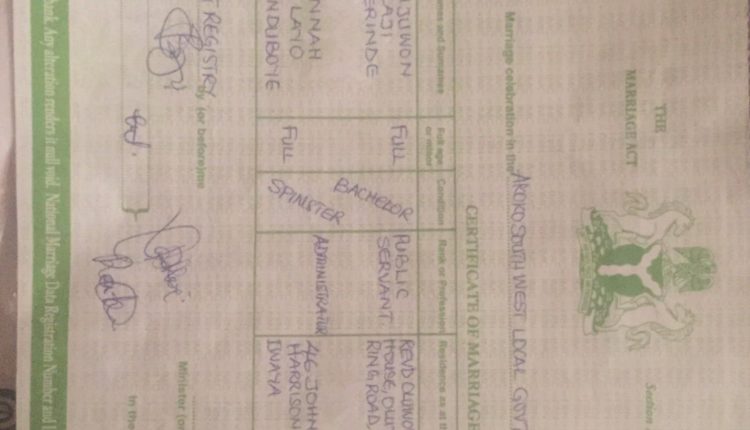 THE
MARRIAGE ACT
Section
CERTIFICATE OF MARRIAGE
Marriage celebration in the AKOKO SOUTH WEST LOCAL GOVT
Names and Surnames Full age or minor Condition Rank or Profession Residence at
JUWON FULL BACHELOR PUBLIC REVD
AJI SERVANT HOUSE,
ERINDE RING ROAD
NNAH FULL SPINSTER ADMINISTRATOR 46, JOHN
LAYO HARRISON
NDUBOYE IWAYA
REGISTRY by (or before) me
Minister (or
In the
Any alteration renders it null void. National Marriage Data Registration Number and